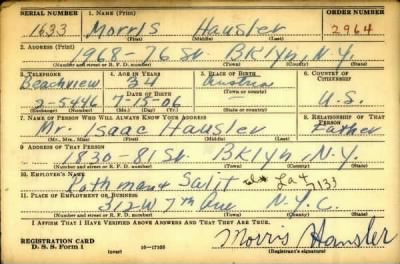 SERIAL NUMBER 1. NAME (Print) ORDER NUMBER
1633 Morris Hausler 2964
(First) (Middle) (Last)
2. ADDRESS (Print)
1968-76 St. Bklyn, N.Y.
(Number and street or R. F. D. number) (Town) (County) (State)
3. TELEPHONE 4. AGE IN YEARS 5. PLACE OF BIRTH 6. COUNTRY OF CITIZENSHIP
Beachview 34 Austria
DATE OF BIRTH (Town or county)
2-5496 7-15-06 U.S.
(Exchange) (Number) (Mo.) (Day) (Yr.) (State or country)
7. NAME OF PERSON WHO WILL ALWAYS KNOW YOUR ADDRESS 8. RELATIONSHIP OF THAT PERSON
Mr. Isaac Hausler Father
(Mr., Mrs., Miss) (First) (Middle) (Last)
9. ADDRESS OF THAT PERSON
1830-81 St. Bklyn, N.Y.
(Number and street or R. F. D. number) (Town) (County) (State)
10. EMPLOYER'S NAME
Rothman + 7133
11. PLACE OF EMPLOYMENT OR BUSINESS
312 W 7th Ave N.Y.C.
(Number and street or R. F. D. number) (Town) (County) (State)
I AFFIRM THAT I HAVE VERIFIED ABOVE ANSWERS AND THAT THEY ARE TRUE.
REGISTRATION CARD
D. S. S. Form 1 (over) 16-17105 Morris Hausler
(Registrant's signature)